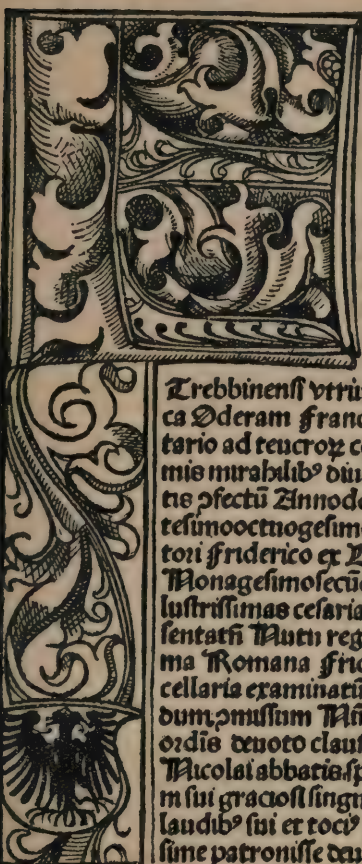 Trebbinensi vtriu
ca Oderam franc
tario ad teucroꝝ c
mis mirabilibꝰ diui
tis ꝓfectū Annodo
tesimooctuogesimo
tori friderico ex
Nonagesimosecū
lustrissimas cesaria
sentatū Nutu reg
ma Romana fric
cellaria examinatū
dum ꝓmissum
ordīs deuoto clau
Nicolai abbatis sp
m sui graciosi singu
laudibꝰ sui et tociꝰ
sime patronisse deu